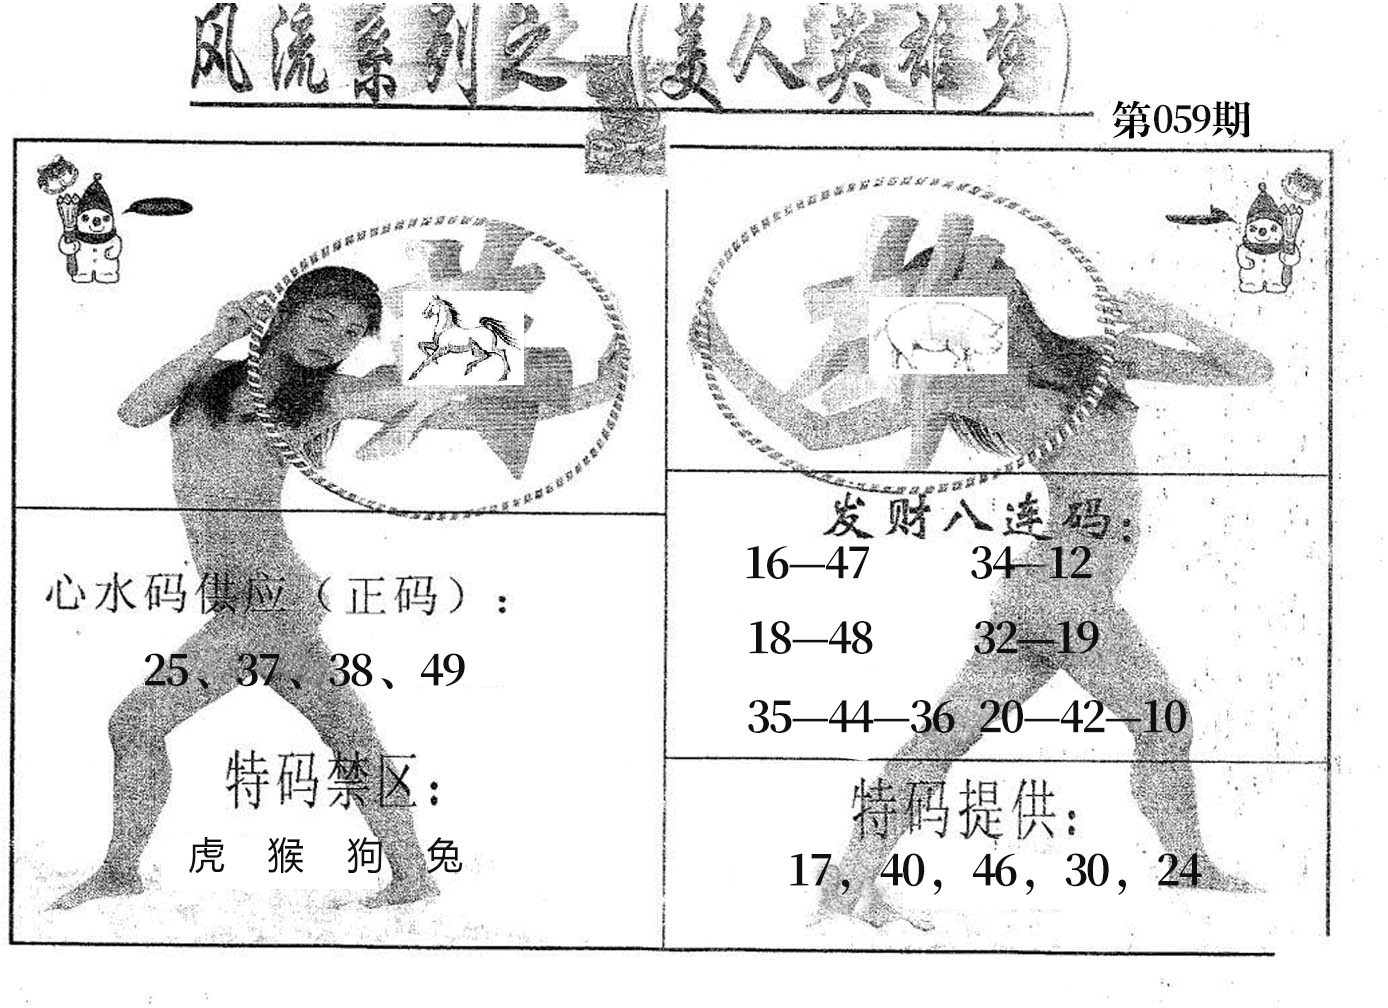 风流系列之 美人英雄梦
第059期
心水码供应（正码）:
25、37、38、49
特码禁区:
虎 猴 狗 兔
发财八连码:
16—47 34—12
18—48 32—19
35—44—36 20—42—10
特码提供:
17, 40, 46, 30, 24